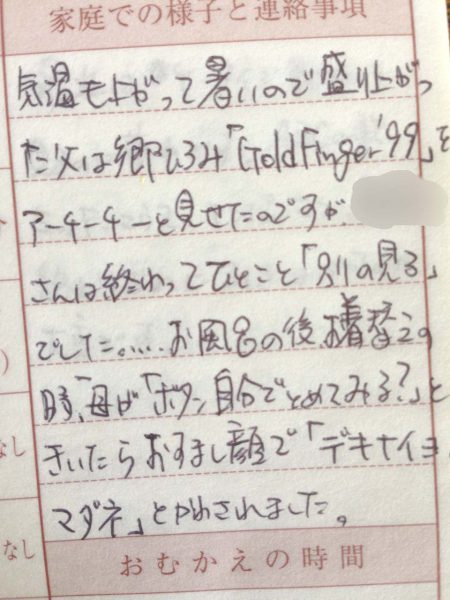 家庭での様子と連絡事項
気温も上がって暑いので盛り上がっ
た父は郷ひろみ「GoldFinger'99」を
アーチーチーと見せたのですが、
さんは終わってひとこと「別の見る」
でした。.... お風呂の後、お着替えの
時、母が「ボタン自分でとめてみる?」と
きいたらおすまし顔で「デキナイヨ
マダネ」とかわされました。
おむかえの時間
なし
なし